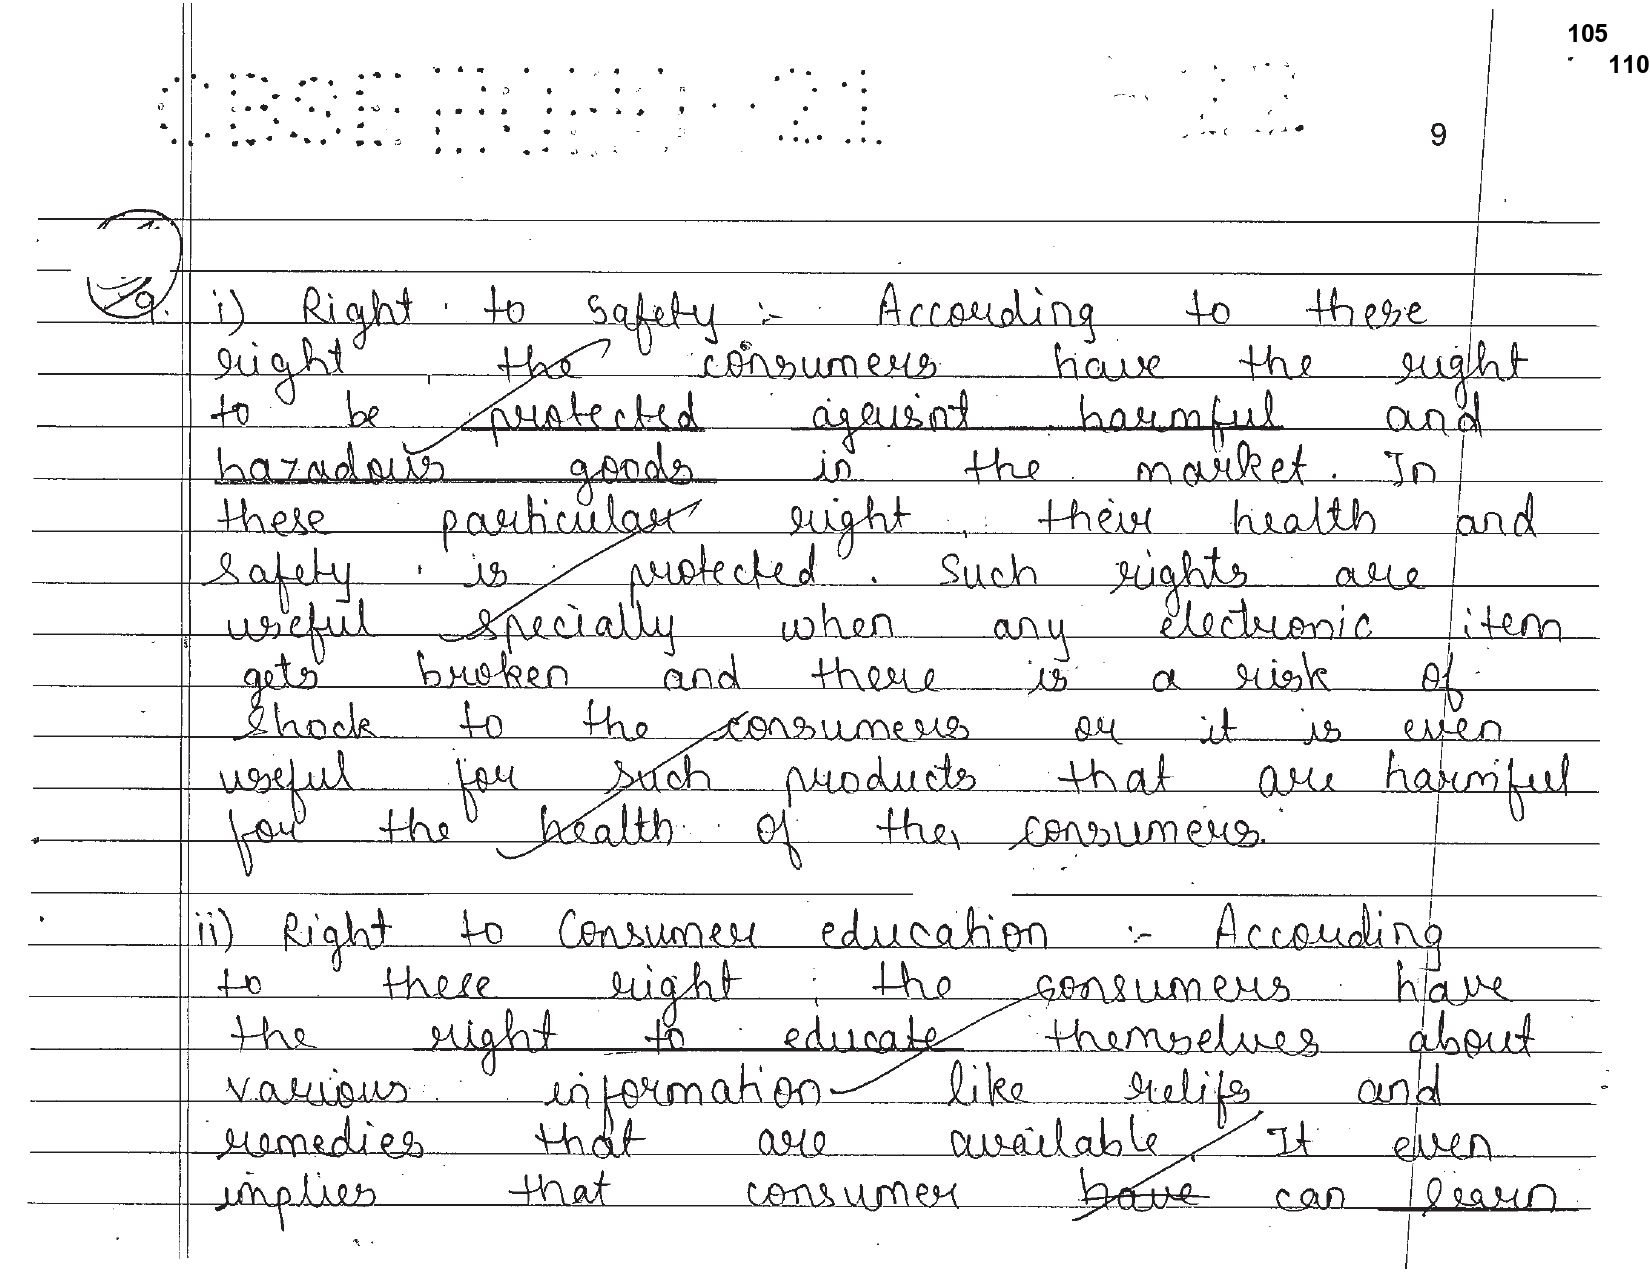 105
110
9
9. i) Right to safety :- According to these
right, the consumers have the right
to be protected against harmful and
hazadous goods in the market. In
these particular right, their health and
safety is protected. Such rights are
useful specially when any electronic item
gets broken and there is a risk of
shock to the consumers or it is even
useful for such products that are harmful
for the health of the consumers.
ii) Right to Consumer education :- According
to these right, the consumers have
the right to educate themselves about
various information like relifs and
remedies that are available. It even
implies that consumer have can learn